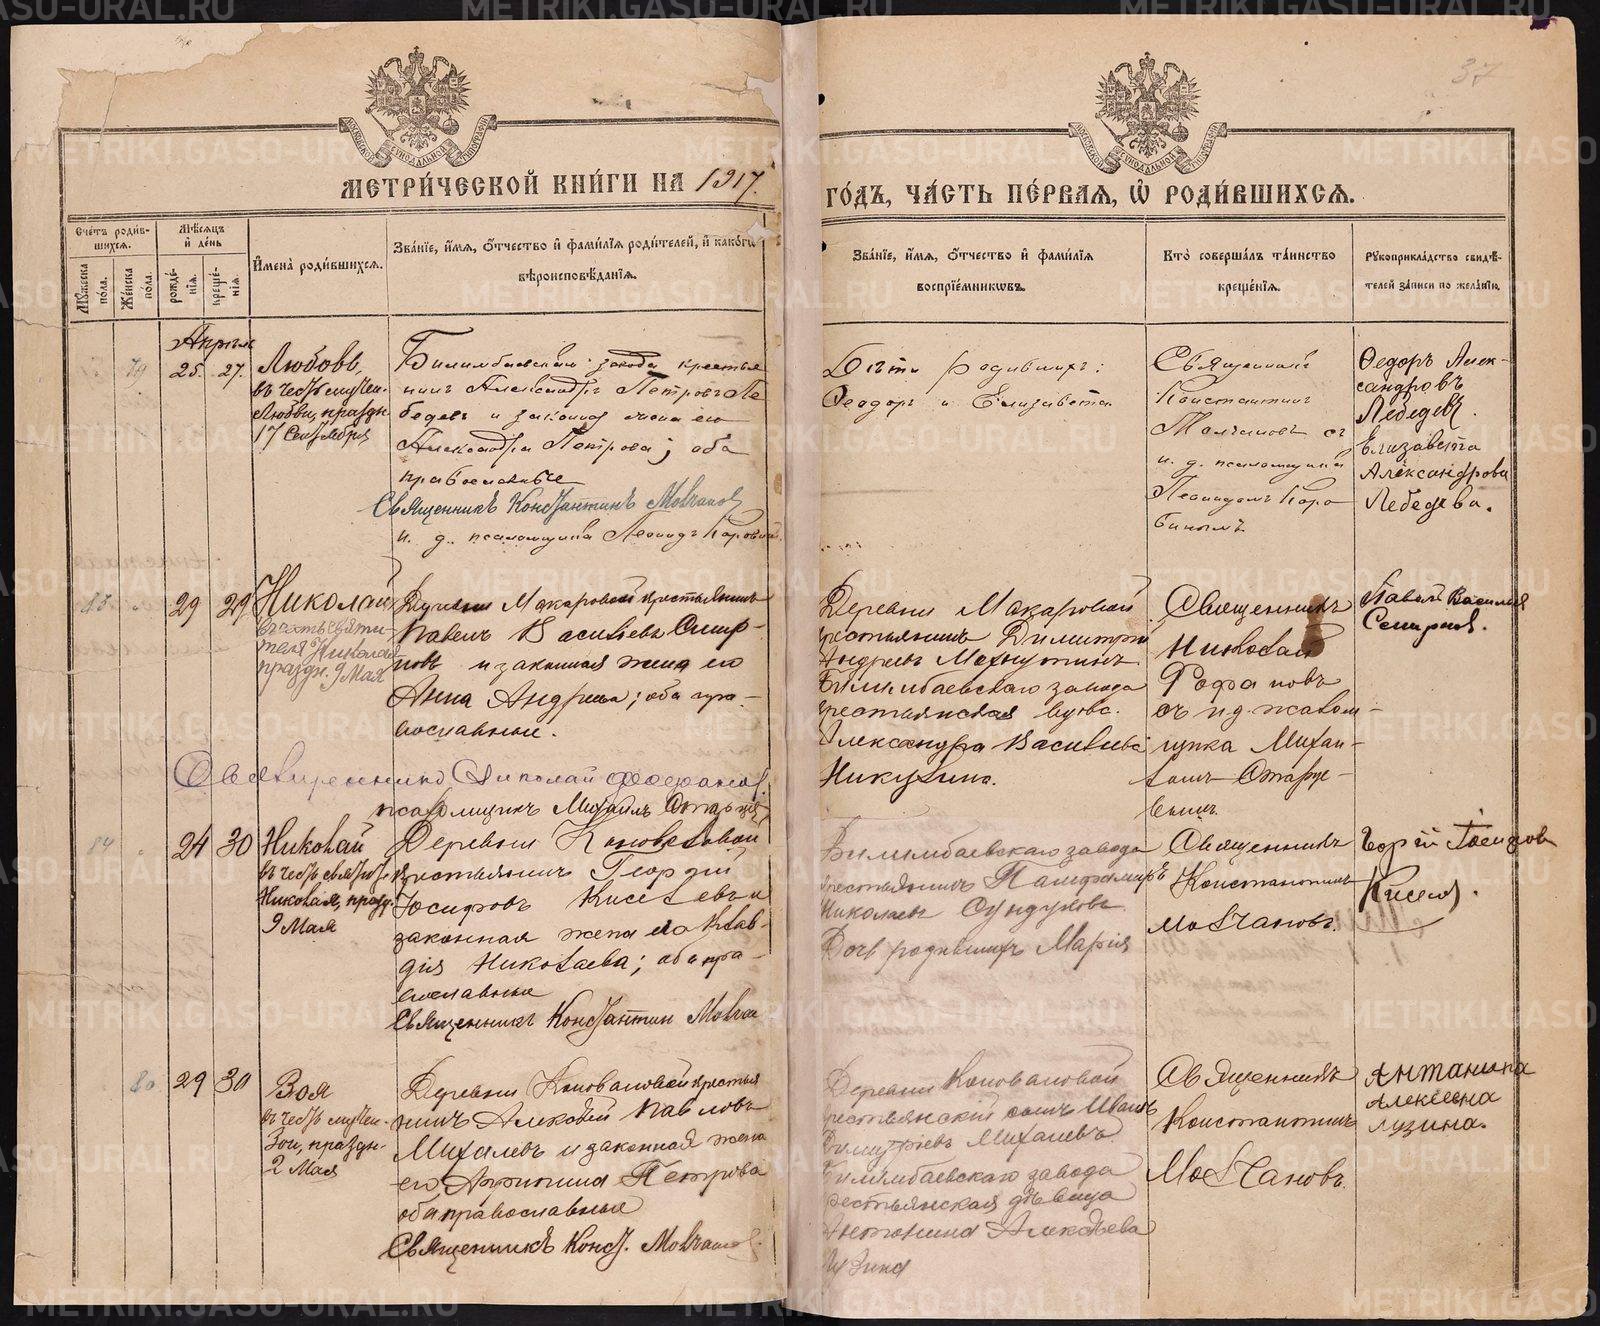 37
МЕТРИ́ЧЕСКОЙ КНИ́ГИ НА 1917.
ГО́ДЪ, ЧА́СТЬ ПЕ́РВАЯ, Ѽ РОДИ́ВШИХСЯ.
Сче́тъ роди́в-
шихся.
Мѣ́сяцъ
и҆ де́нь
Мꙋ́жеска по́ла.
Же́нска по́ла.
рожде́-
нїя.
креще́-
нїя.
И҆мена̀ роди́вшихся.
Зва́нїе, и҆́мя, ѻ҆́тчество и҆ фами́лїя роди́телей, и҆ како́гѡ
вѣроисповѣ́данїя.
Зва́нїе, и҆́мя, ѻ҆́тчество и҆ фами́лїя
воспрїе́мникѡвъ.
Кто̀ соверша́лъ та́инство
креще́нїя.
Рꙋкоприкла́дство свидѣ́-
телей за́писи по жела́нїю.
Апрѣль
79
25. 27.
Любовь,
въ честь мучен.
Любви, праздн
17 Сентября
Билимбаевскаго завода крестья
нинъ Александръ Петровъ Ле
бедевъ и законная жена его
Александра Петрова; оба
православные
Священникъ Константинъ Молчанов
и. д. псаломщика Леонидъ Коровинъ
Дѣти родившихъ:
Ѳеодоръ и Елизавета
Священникъ
Константинъ
Молчановъ съ
и. д. псаломщика
Леонидомъ Коро
винымъ
Ѳедоръ Алек-
сандровъ
Лебедевъ.
Елизавета
Александрова
Лебедева.
83
29 29
Николай
въ честь Святи-
теля Николая
праздн. 9 Мая
Деревни Макаровой крестьянинъ
Павелъ Васильевъ Смир-
новъ и законная жена его
Анна Андреева; оба пра-
вославные.
Священникъ Николай Феофанов.
псаломщикъ Михаилъ
Деревни Макаровой
крестьянинъ Димитрій
Андреевъ
Билимбаевскаго завода
крестьянская вдова
Александра Васильева
Никулина.
Священникъ
Николай
съ и д. псалом-
щика Михаи-
ломъ
Павелъ Василия
Смирнов.
84
24 30
Николай
въ честь святит.
Николая, празд.
9 Мая
Деревни Коноваловой
крестьянинъ Георгій
Іосифовъ Киселевъ и
законная жена его Клав-
дія Николаева; оба пра-
вославные
Священникъ Константин Молчан
Билимбаевскаго завода
крестьянинъ
Николаевъ Сундуковъ
Дочь родившихъ Марія
Священникъ
Константинъ
Молчановъ.
Киселев.
80
29 30
Зоя
въ честь мучен.
Зои, праздн.
2 Мая
Деревни Коноваловой крестья
нинъ Алексѣй Павловъ
Михалевъ и законная жена
его Агрипина Петрова
оба православные
Священникъ Конст. Молчанов.
Деревни Коноваловой
крестьянскій сынъ Иванъ
Димитріевъ Михалевъ.
Билимбаевскаго завода
крестьянская дѣвица
Антонина Алексѣева
Лузина
Священникъ
Константинъ
Молчановъ.
Антанина
Алексеевна
Лузина.
METRIKI.GASO-URAL.RU